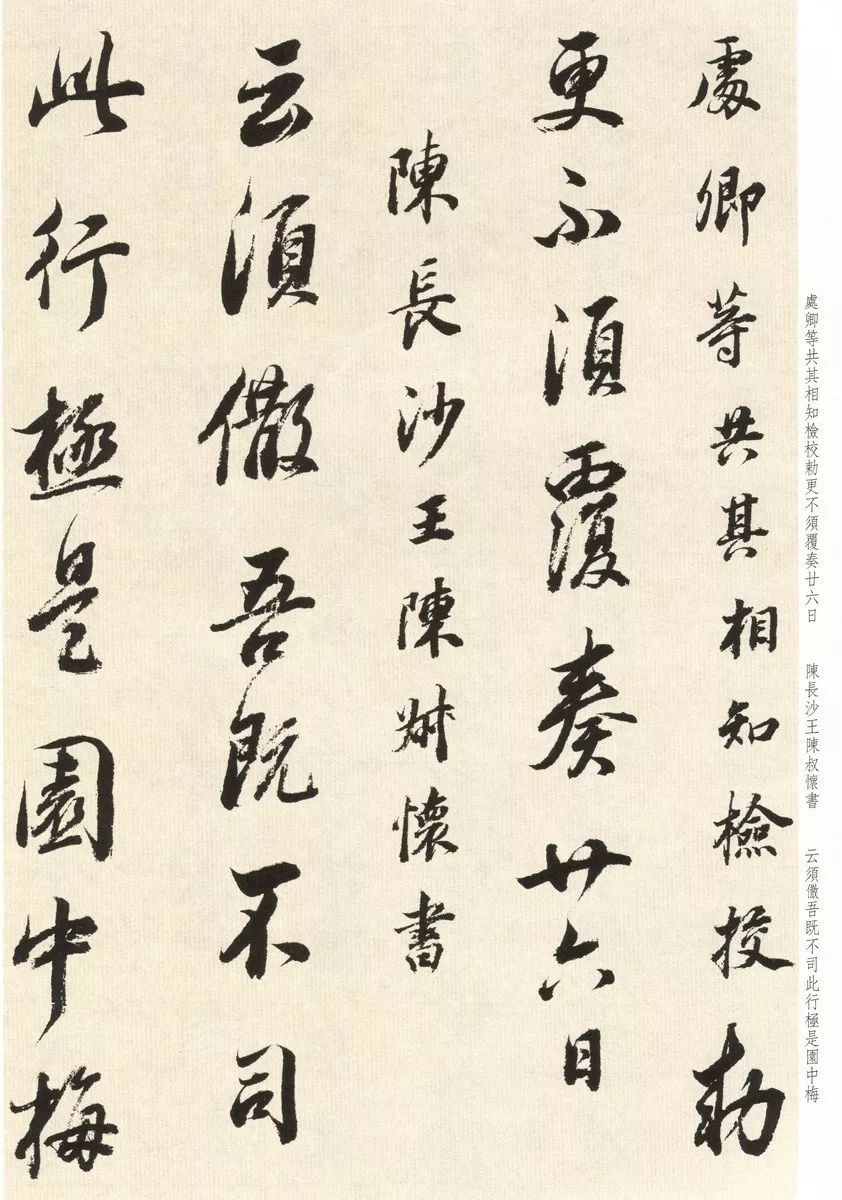 處卿等共其相知檢校勅
更不須覆奏廿六日
陳長沙王陳叔懷書
云須儆吾既不司
此行極是園中梅
處卿等共其相知檢校勅更不須覆奏廿六日 陳長沙王陳叔懷書 云須儆吾既不司此行極是園中梅